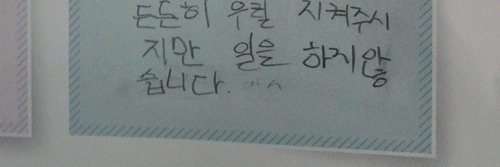 든든히 우릴 지켜주시
지만 일을 하지않
습니다.